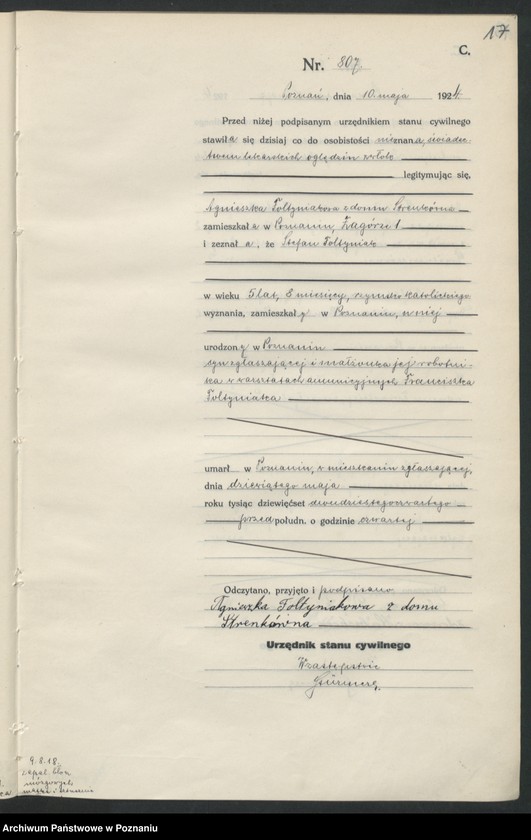 17
C.
Nr. 807
Poznań, dnia 10. maja 1924.
Przed niżej podpisanym urzędnikiem stanu cywilnego
stawiła się dzisiaj co do osobistości nieznana, świadec
twem lekarskich oględzin zwłok
legitymując się,
Agnieszka Tołtyniakowa z domu Strenkówna
zamieszkała w Poznaniu, Zagórze 1
i zeznała, że Stefan Tołtyniak
w wieku 5 lat, 8 miesięcy, rzymsko katolickiego
wyznania, zamieszkały w Poznaniu, u niej
urodzony w Poznaniu
syn zgłaszającej i małżonka jej robotni-
ka w warsztatach amunicyjnych Franciszka
Tołtyniaka
umarł w Poznaniu, w mieszkaniu zgłaszającej,
dnia dziewiątego maja
roku tysiąc dziewięćset dwudziestegoczwartego
przed połudn. o godzinie czwartej
Odczytano, przyjęto i podpisano
Agnieszka Tołtyniakowa z domu
Strenkówna
Urzędnik stanu cywilnego
W zastępstwie
9.8.18.
zapal. błon
mózgowych
Archiwum Państwowe w Poznaniu